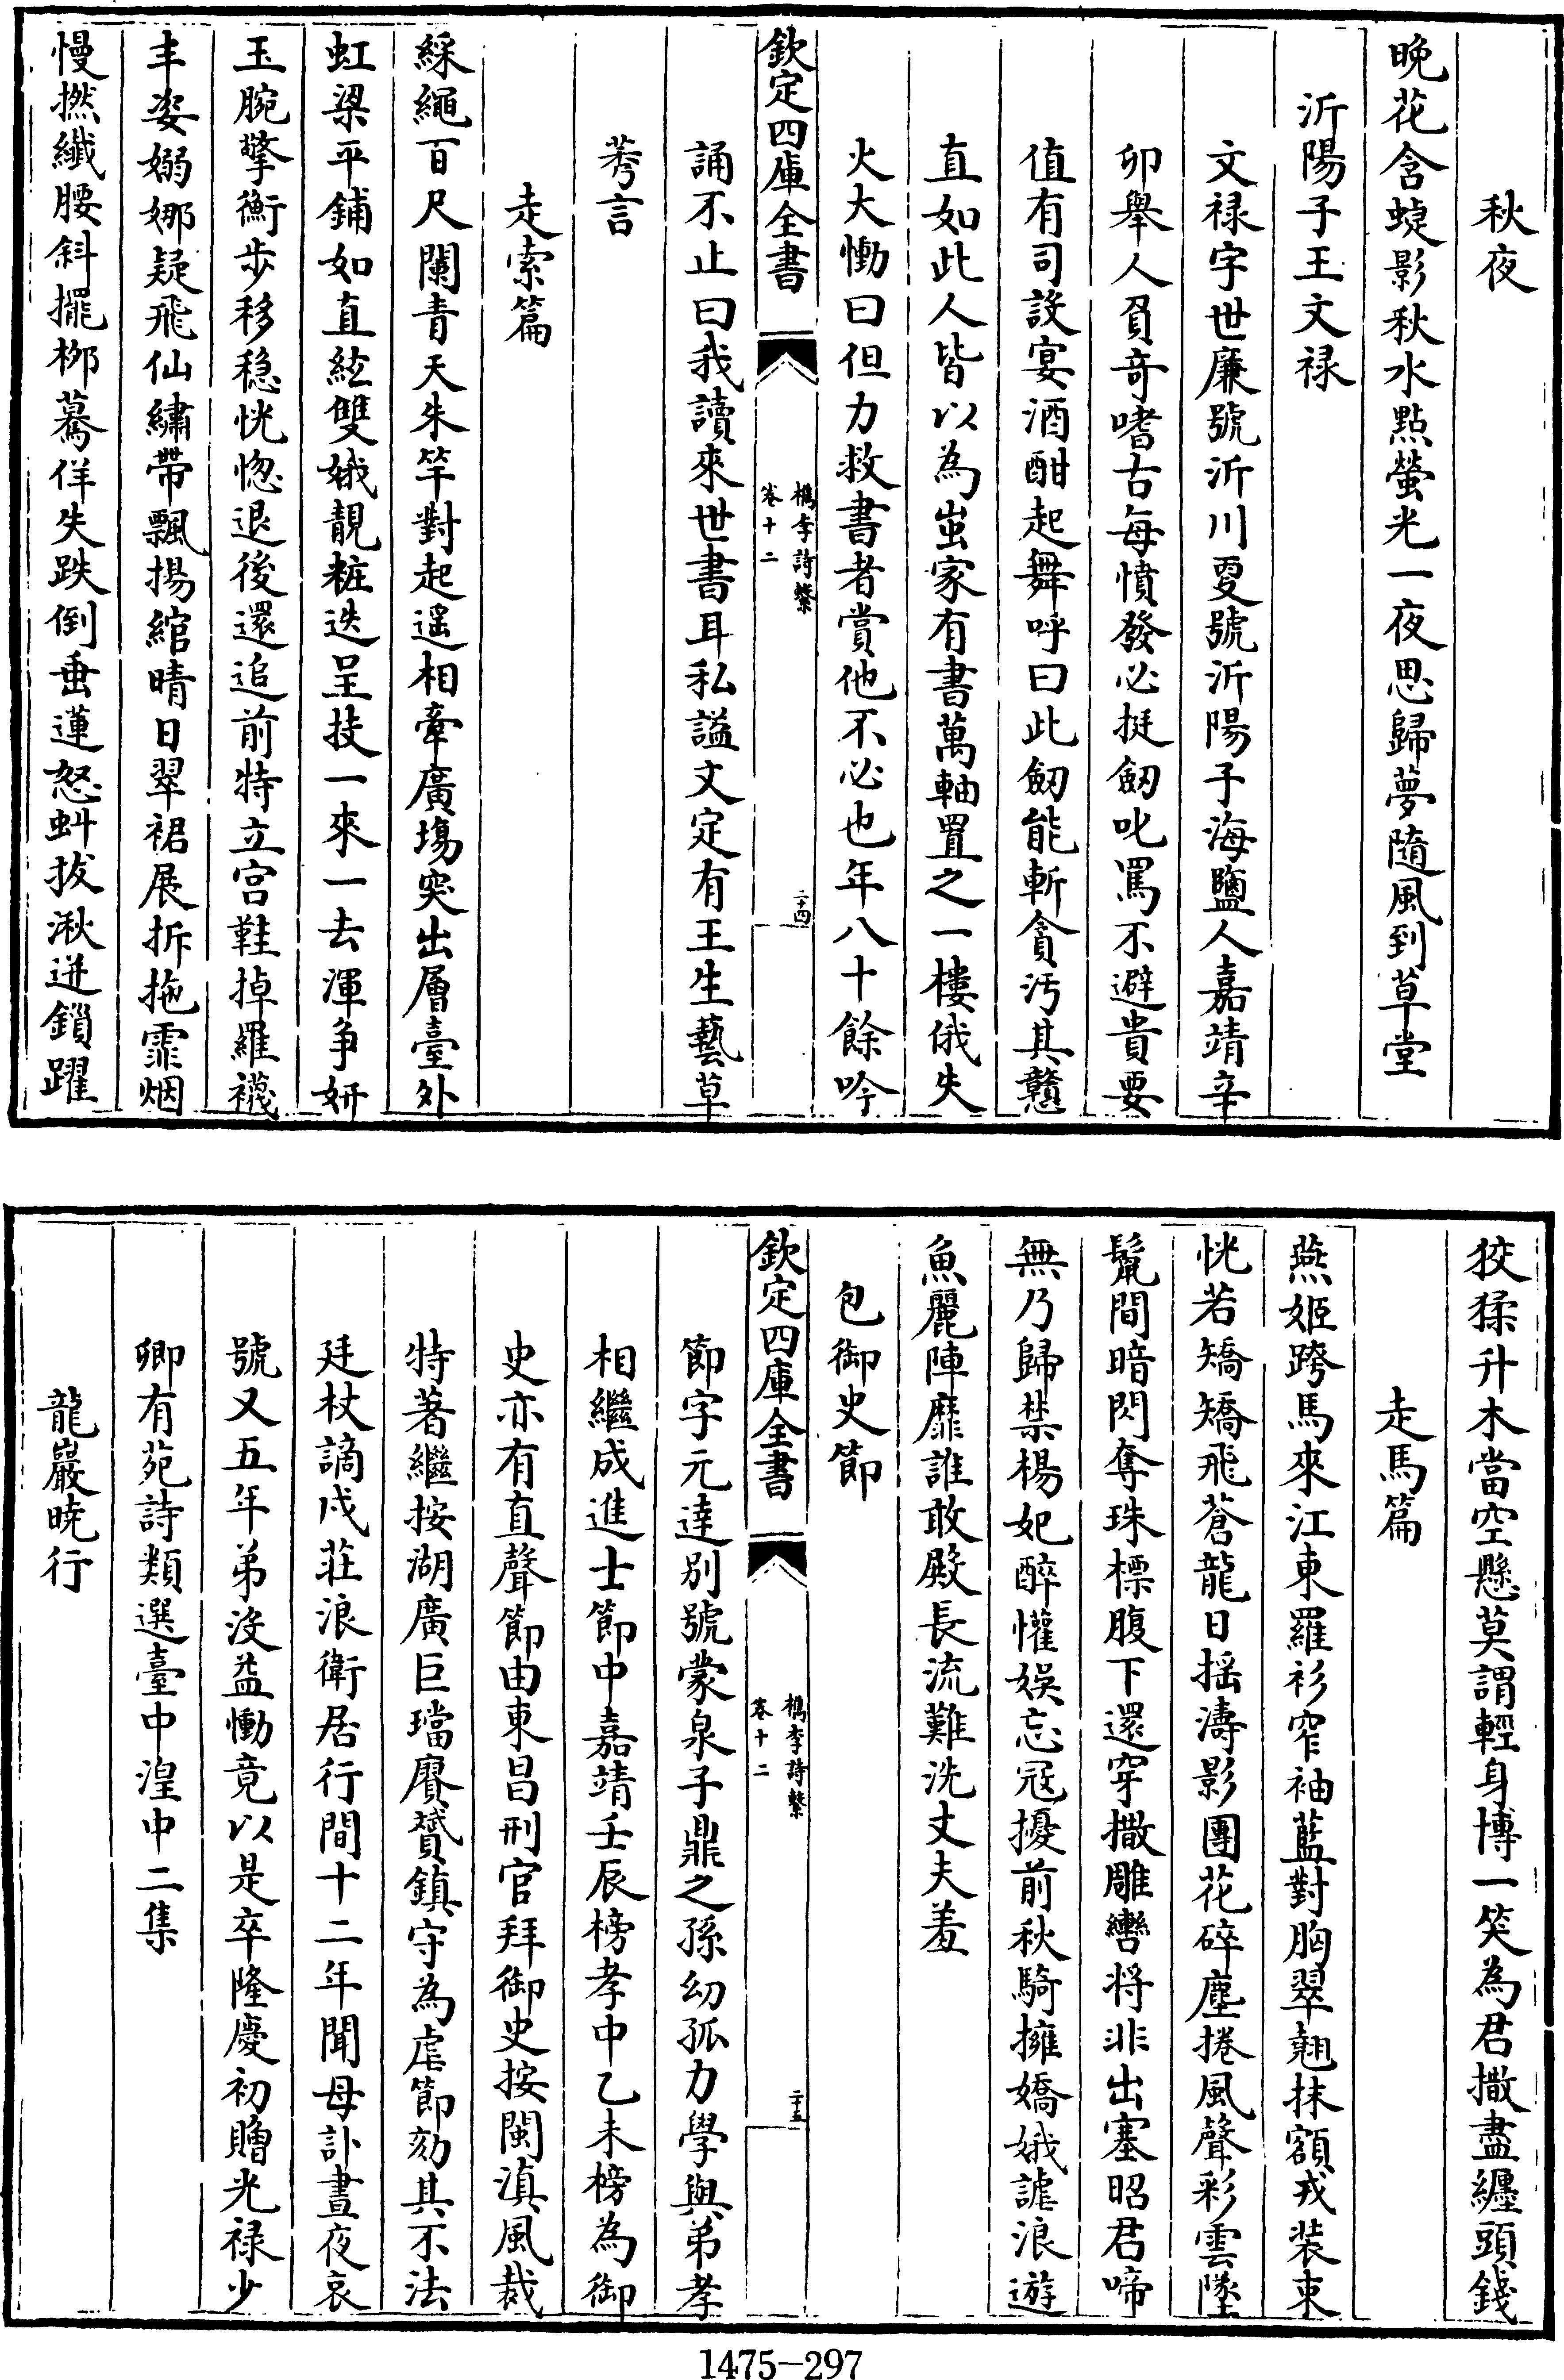 秋夜
晚花含蜨影秋水點螢光一夜思歸夢隨風到草堂
沂陽子王文祿
文祿字世廉號沂川更號沂陽子海鹽人嘉靖辛
卯舉人負奇嗜古每憤發必挺劒叱罵不避貴要
值有司設宴酒酣起舞呼曰此劒能斬貪汚其戇
直如此人皆以為蚩家有書萬軸置之一樓俄失
火大慟曰但力救書者賞他不必也年八十餘吟
欽定四庫全書
檇李詩繫
卷十二
二十四
誦不止曰我讀來世書耳私諡文定有王生藝草
莠言
走索篇
綵繩百尺闌青天朱竿對起遥相牽廣塲突出層臺外
虹梁平鋪如直絃雙娥靚粧迭呈技一來一去渾争妍
玉腕擎衡步移穏恍惚退後還追前特立宫鞋掉羅襪
丰姿嫋娜疑飛仙繡帶飄揚綰晴日翠裙展拆拖霏烟
慢撚纖腰斜擺栁驀佯失跌倒垂蓮怒虯拔湫迸鎖躍
狡猱升木當空懸莫謂輕身博一笑為君撒盡纏頭錢
走馬篇
燕姬跨馬來江東羅衫窄袖藍對胸翠翹抹額戎装束
恍若矯矯飛蒼龍日揺濤影團花碎塵捲風聲彩雲墜
鬣間暗閃奪珠標腹下還穿撒雕轡将非出塞昭君啼
無乃歸禁楊妃醉懽娱忘冦擾前秋騎擁嬌娥謔浪遊
魚麗陣靡誰敢殿長流難洗丈夫羞
包御史節
欽定四庫全書
檇李詩繫
卷十二
二十五
節字元達别號蒙泉子鼎之孫幼孤力學與弟孝
相繼成進士節中嘉靖壬辰榜孝中乙未榜為御
史亦有直聲節由東昌刑官拜御史按閩滇風裁
特著繼按湖廣巨璫廖贇鎮守為虐節劾其不法
廷杖謫戍莊浪衛居行間十二年聞母訃晝夜哀
號又五年弟没益慟竟以是卒隆慶初贈光禄少
卿有苑詩類選臺中湟中二集
龍巖曉行
1475-297